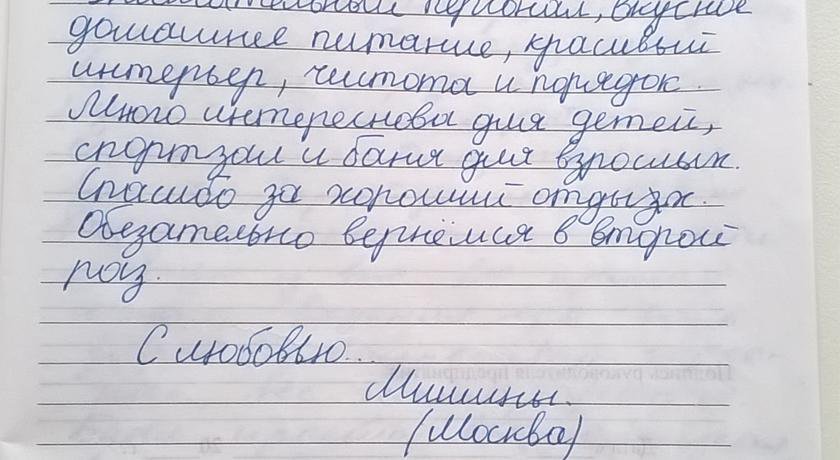 персонал, вкусное
домашнее питание, красивый
интерьер, чистота и порядок.
Много интереснова для детей,
спортзал и баня для взрослых.
Спасибо за хороший отдых.
Обезательно вернёмся в второй
раз.
С любовью...
Мишины.
(Москва)
Подпись руководителя предприятия
20